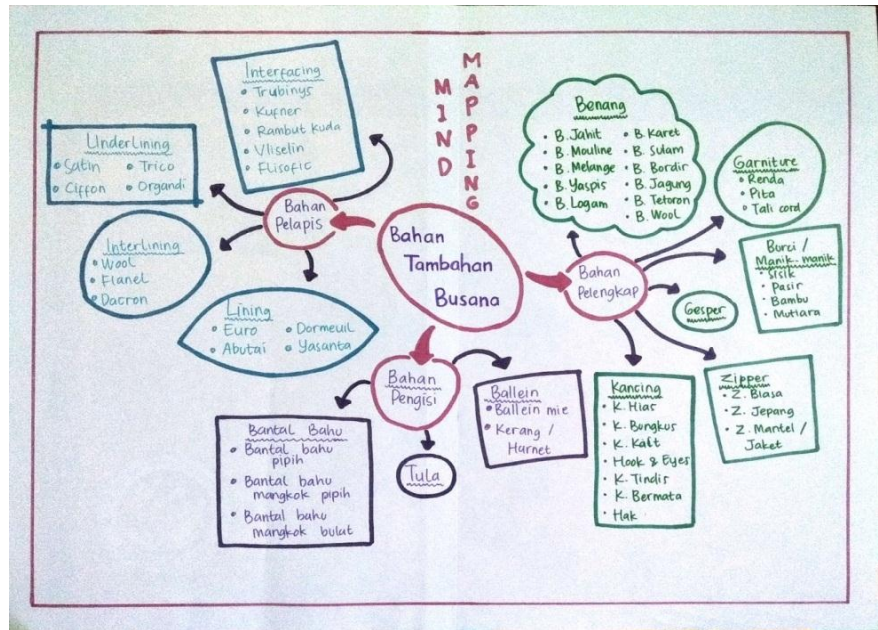 MIND
MAPPING
Bahan
Tambahan
Busana
Bahan
Pelapis
Interfacing
• Trubinys
• Kufner
• Rambut kuda
• Vliselin
• Flisofic
Underlining
• Satin • Trico
• Ciffon • Organdi
Interlining
• Wool
• Flanel
• Dacron
Lining
• Euro • Dormeuil
• Abutai • Yasanta
Bahan
Pengisi
Bantal Bahu
• Bantal bahu
pipih
• Bantal bahu
mangkok pipih
• Bantal bahu
mangkok bulat
Tula
Ballein
• Ballein mie
• Kerang /
Harnet
Bahan
Pelengkap
Benang
• B. Jahit • B. Karet
• B. Mouline • B. Sulam
• B. Melange • B. Bordir
• B. Yaspis • B. Jagung
• B. Logam • B. Tetoron
• B. Wool
Garniture
• Renda
• Pita
• Tali cord
Burci /
Manik-manik
• Sisik
• Pasir
• Bambu
• Mutiara
Gesper
Zipper
• Z. Biasa
• Z. Jepang
• Z. Mantel /
Jaket
Kancing
• K. Hias
• K. Bungkus
• K. Kait
• Hook & Eyes
• K. Tindis
• K. Bermata
• Hak